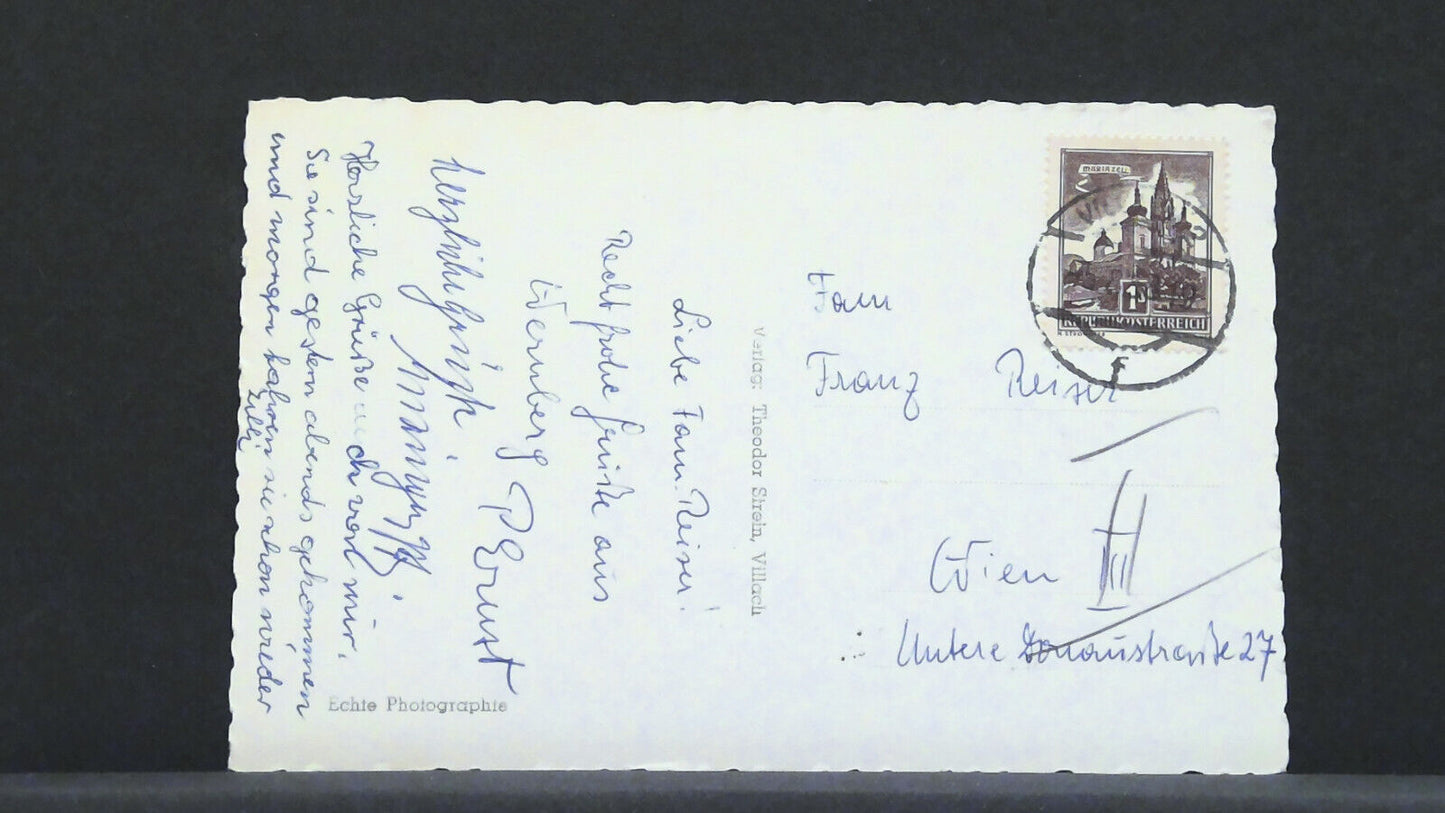 Liebe Fam. Reiser!
Recht frohe Grüße aus
Wernberg
P. Ernst
Herzliche Grüße auch von mir.
Sie sind gestern abends gekommen
und morgen fahren sie schon wieder
Lilli
Echte Photographie
Verlag: Theodor Strein, Villach
MARIAZELL
1S
REPUBLIK ÖSTERREICH
f
Fam
Franz Reiser
Wien II
Untere Donaustraße 27